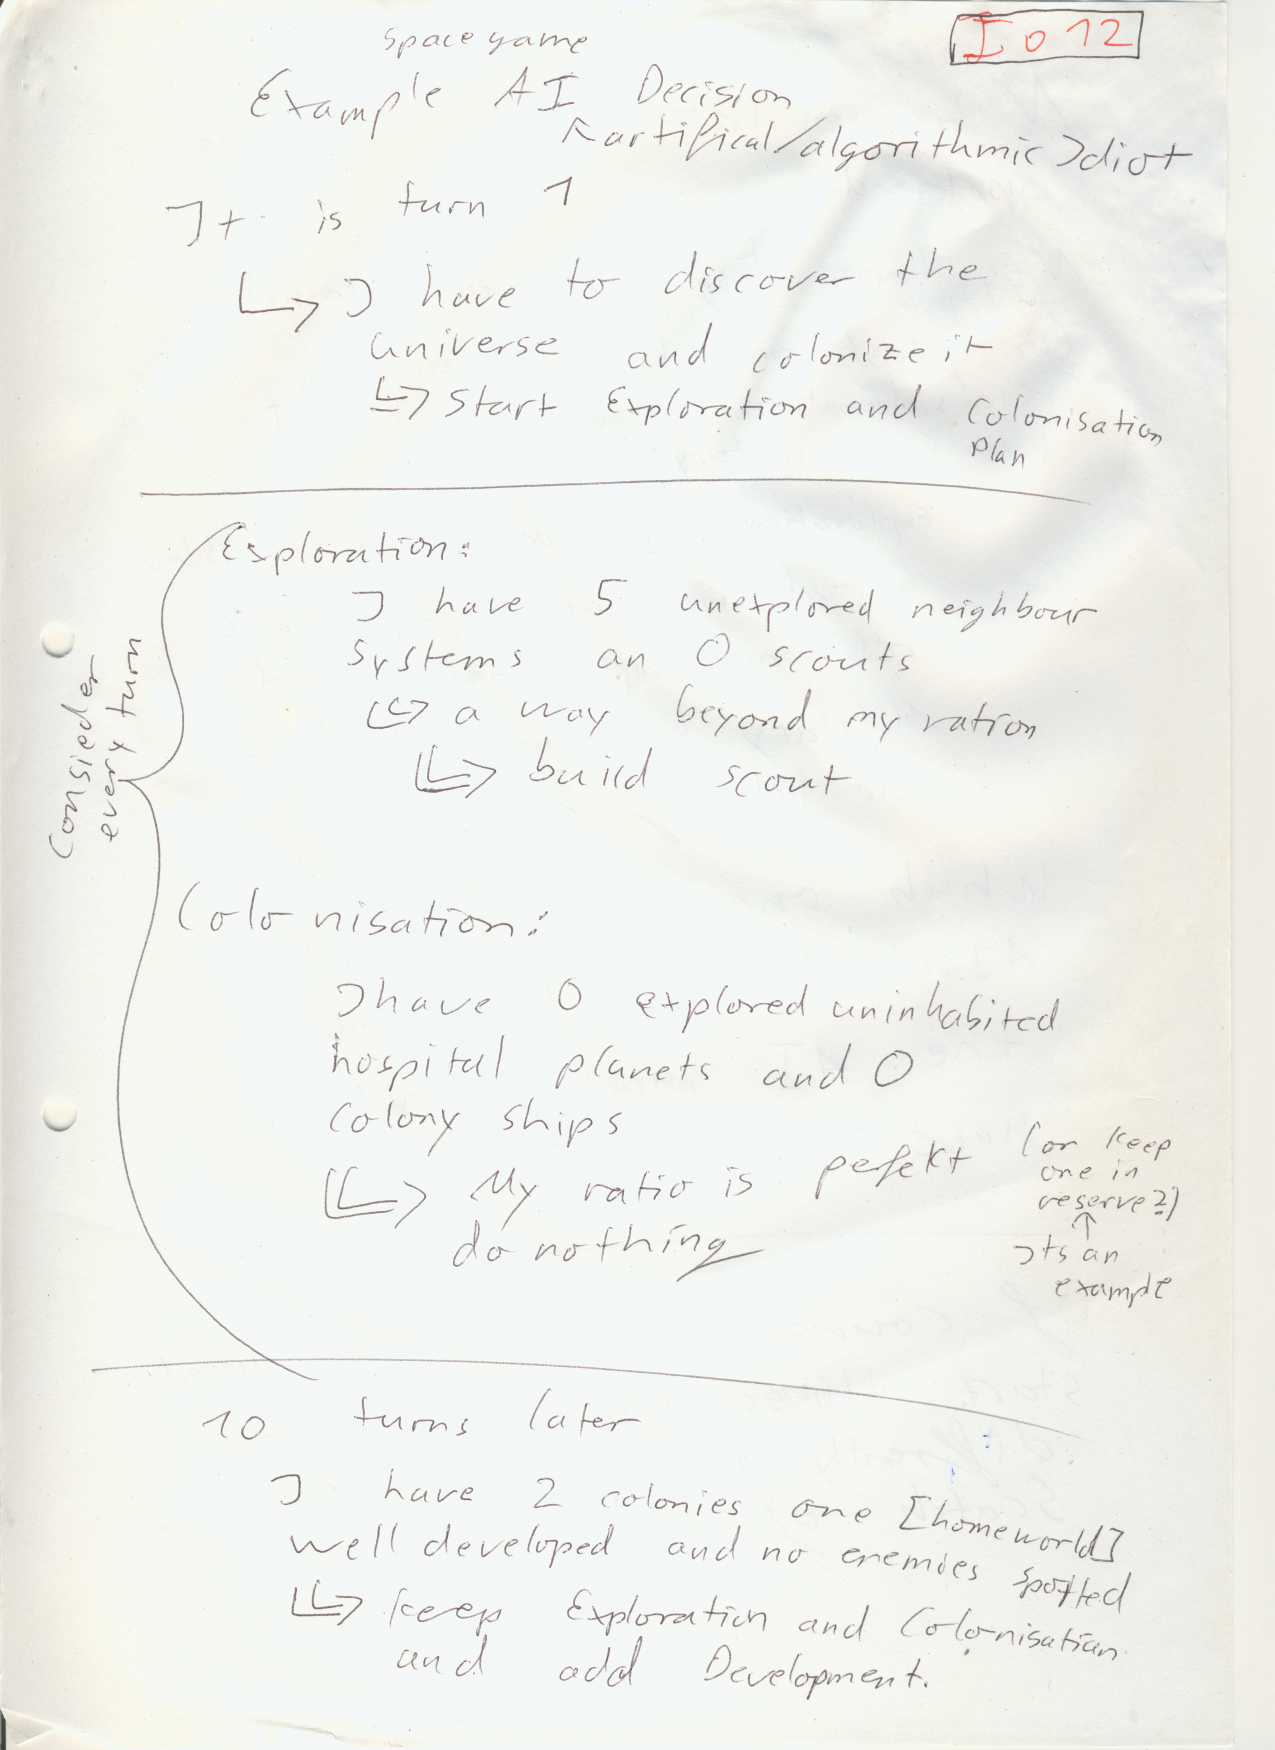 spacegame
I o 12
Example AI Decision
artifical/algorithmic Idiot
It is turn 1
I have to discover the
universe and colonize it
Start Exploration and Colonisation
Plan
Consieder
every turn
Exploration:
I have 5 unexplored neighbour
systems an 0 scouts
a way beyond my ration
build scout
Colonisation:
I have 0 explored uninhabited
hospital planets and 0
colony ships
My ratio is perfekt
do nothing
(or keep
one in
reserve?)
Its an
example
10 turns later
I have 2 colonies one [homeworld]
well developed and no enemies spotted
keep Exploration and Colonisation
and add Development.